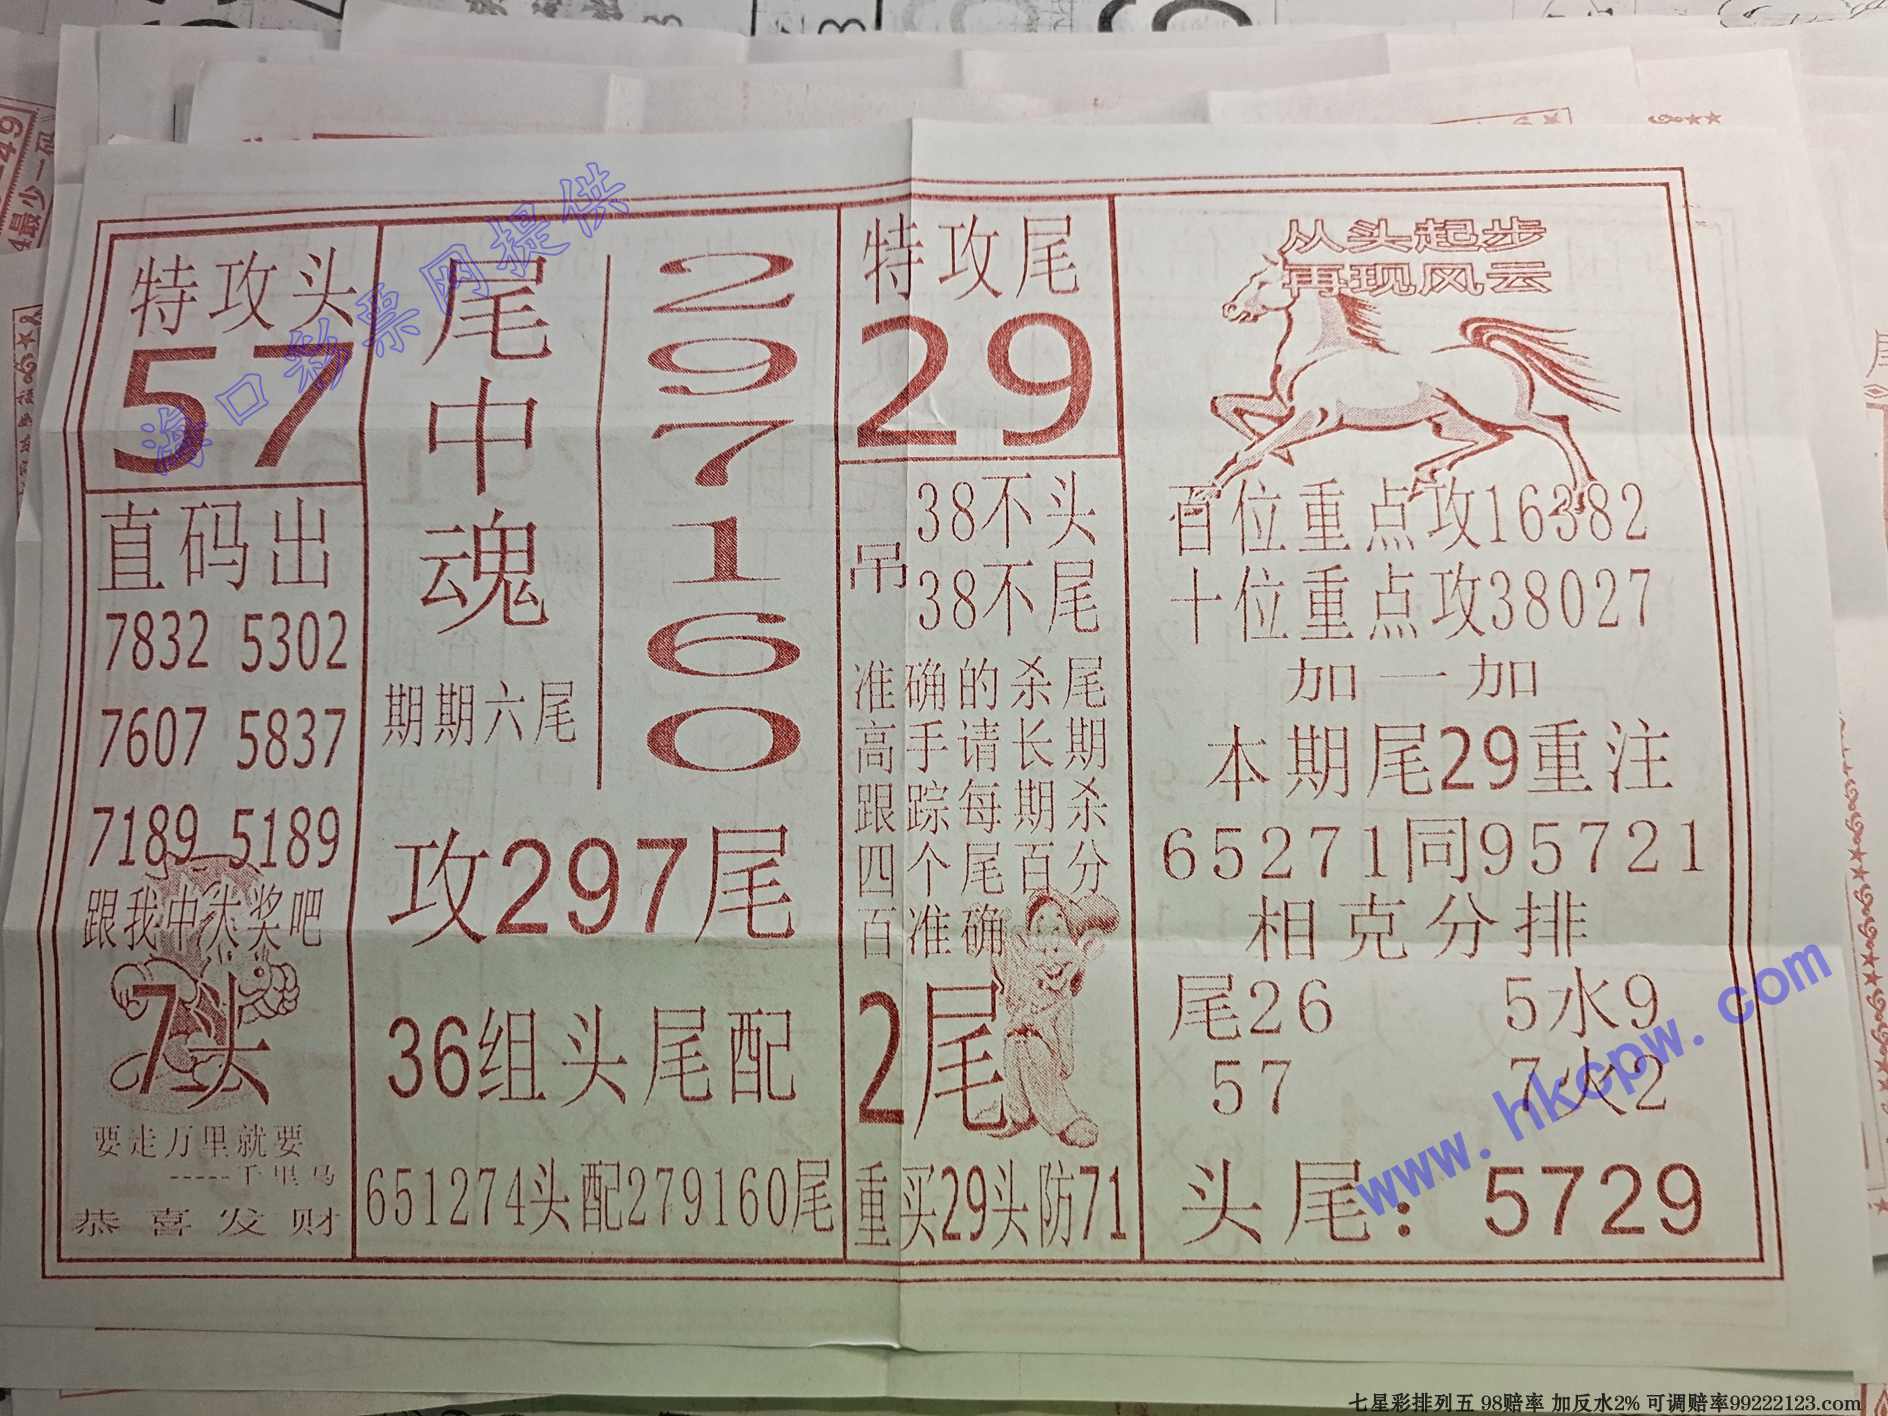 特攻头
57
直码出
7832 5302
7607 5837
7189 5189
跟我中大奖吧
7头
要走万里就要
-----千里马
恭喜发财
尾中魂
期期六尾
297160
攻297尾
36组头尾配
651274头配279160尾
特攻尾
29
吊
38不头
38不尾
准确的杀尾
高手请长期
跟踪每期杀
四个尾百分
百准确
2尾
重买29头防71
从头起步
再现风云
百位重点攻16382
十位重点攻38027
加一加
本期尾29重注
65271同95721
相克分排
尾26 5水9
57 7火2
头尾：5729
海口彩票网提供
www.hkcpw.com
七星彩排列五 98赔率 加反水2% 可调赔率99222123.com
49
4最少一码